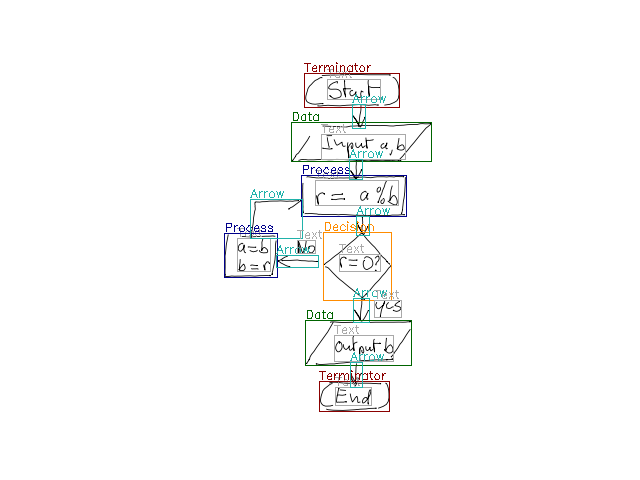 Terminator
Text
Start
Arrow
Data
Text
Input a,b
Arrow
Process
r = a%b
Arrow
Arrow
Process
Decision
Text
No
a=b
b=r
Arrow
Text
r=0?
Arrow
Text
yes
Data
Text
output b
Arrow
Terminator
Text
End